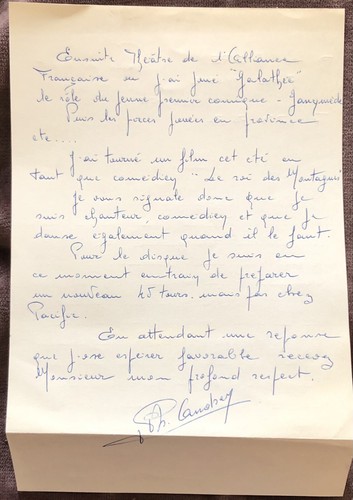 Ensuite Théâtre de l'Alliance
Française où j'ai joué "Galathée"
le rôle du jeune premier comique - Ganymède
Puis les forces jouées en province
etc....
J'ai tourné un film cet été en
tant que comédien "Le roi des Montagnes
Je vous signale donc que je
suis chanteur, comédien et que je
danse également quand il le faut.
Pour le disque je suis en
ce moment en train de préparer
un nouveau 45 tours. mais pas chez
Pacific.
En attendant une réponse
que j'ose espérer favorable recevez
Monsieur mon profond respect.
Ph.